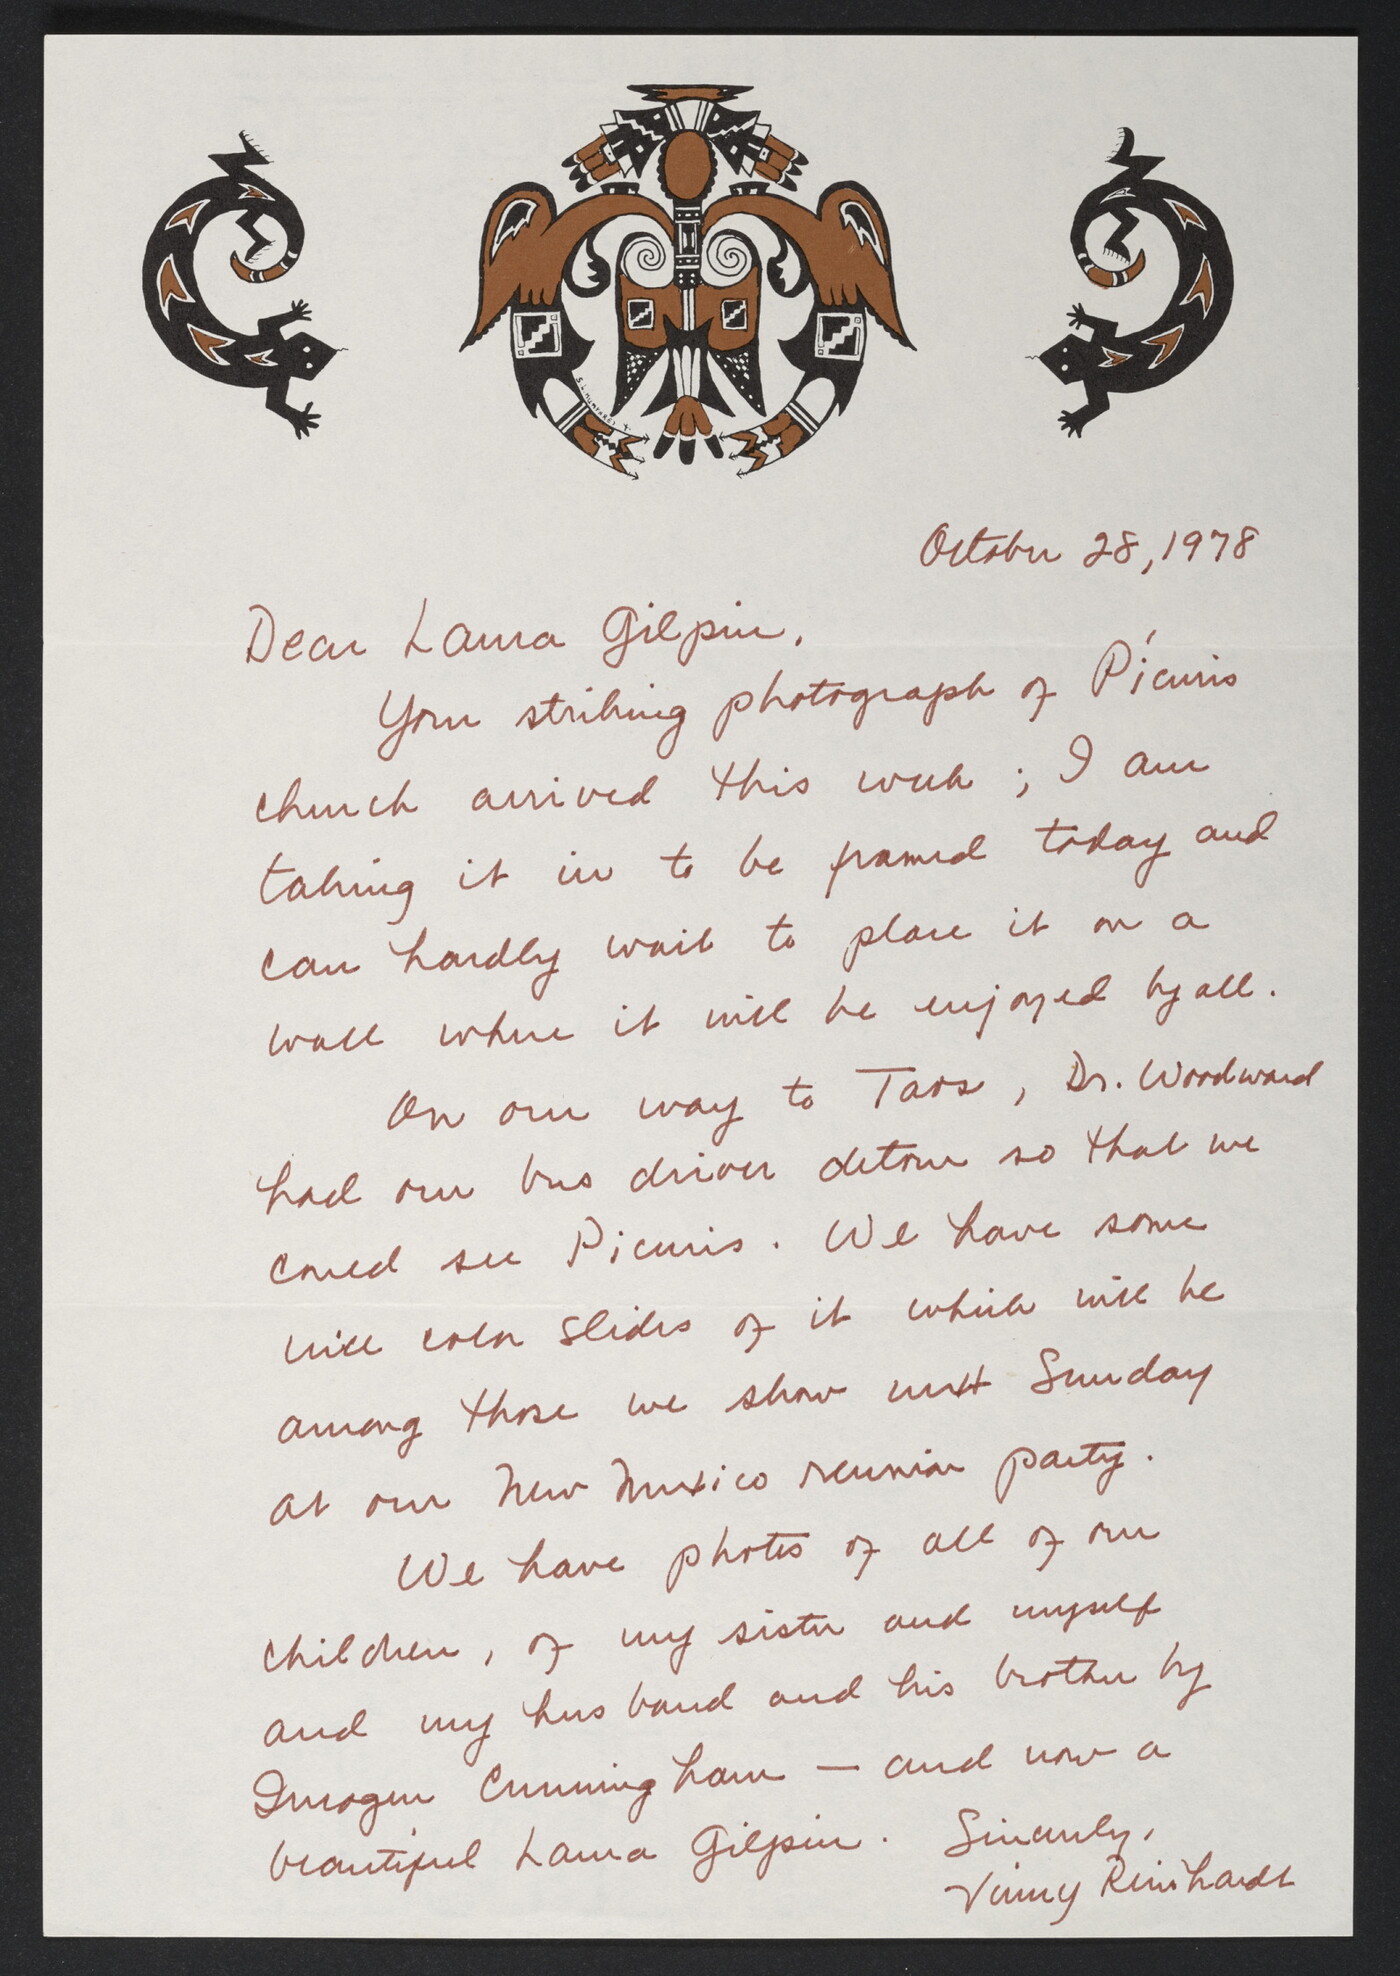 October 28, 1978
Dear Laura Gilpin,
Your striking photograph of Pícuris
church arrived this week; I am
taking it in to be framed today and
can hardly wait to place it on a
wall where it will be enjoyed by all.
On our way to Taos, Dr. Woodward
had our bus driver detour so that we
could see Picuris. We have some
nice color slides of it which will be
among those we show next Sunday
at our New Mexico reunion party.
We have photos of all of our
children, of my sister and myself
and my husband and his brother by
Imogen Cunningham — and now a
beautiful Laura Gilpin. Sincerely,
Vinny Reinhardt